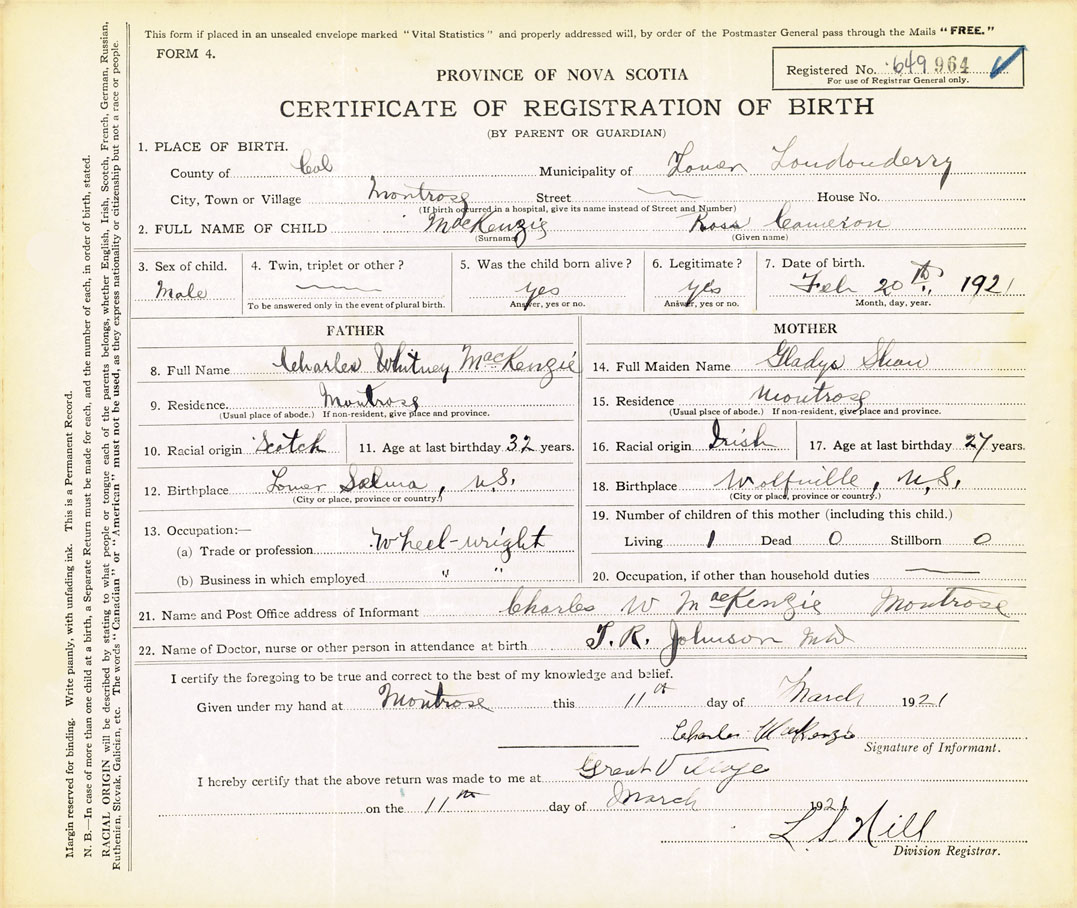 This form if placed in an unsealed envelope marked "Vital Statistics" and properly addressed will, by order of the Postmaster General pass through the Mails "FREE."
FORM 4.
Registered No. 649 964
For use of Registrar General only.
PROVINCE OF NOVA SCOTIA
CERTIFICATE OF REGISTRATION OF BIRTH
(BY PARENT OR GUARDIAN)
1. PLACE OF BIRTH.
County of Col Municipality of Lower Londonderry
City, Town or Village Montrose Street House No.
(If birth occurred in a hospital, give its name instead of Street and Number)
2. FULL NAME OF CHILD MacKenzie Ross Cameron
(Surname) (Given name)
3. Sex of child. 4. Twin, triplet or other? 5. Was the child born alive? 6. Legitimate? 7. Date of birth.
Male yes yes Feb 20th 1921
To be answered only in the event of plural birth. Answer, yes or no. Answer, yes or no. Month, day, year.
FATHER MOTHER
8. Full Name Charles Whitney MacKenzie 14. Full Maiden Name Gladys Shaw
9. Residence. Montrose 15. Residence Montrose
(Usual place of abode.) If non-resident, give place and province. (Usual place of abode.) If non-resident, give place and province.
10. Racial origin Scotch 11. Age at last birthday 32 years. 16. Racial origin Irish 17. Age at last birthday 27 years.
12. Birthplace Lower Selma, N.S. 18. Birthplace Wolfville, N.S.
(City or place, province or country.) (City or place, province or country.)
13. Occupation:— 19. Number of children of this mother (including this child.)
(a) Trade or profession Wheel-wright Living 1 Dead 0 Stillborn 0
(b) Business in which employed " " 20. Occupation, if other than household duties
21. Name and Post Office address of Informant Charles W MacKenzie Montrose
22. Name of Doctor, nurse or other person in attendance at birth T. R. Johnson MD
I certify the foregoing to be true and correct to the best of my knowledge and belief.
Given under my hand at Montrose this 11th day of March 1921
Charles MacKenzie
Signature of Informant.
I hereby certify that the above return was made to me at Great Village
on the 11th day of March 1921
L S Hill
Division Registrar.
Margin reserved for binding. Write plainly, with unfading ink. This is a Permanent Record.
N. B.—In case of more than one child at a birth, a Separate Return must be made for each, and the number of each, in order of birth, stated.
RACIAL ORIGIN will be described by stating to what people or tongue each of the parents belongs, whether English, Irish, Scotch, French, German, Russian,
Ruthenien, Slovak, Galician, etc. The words "Canadian" or "American" must not be used, as they express nationality or citizenship but not a race or people.